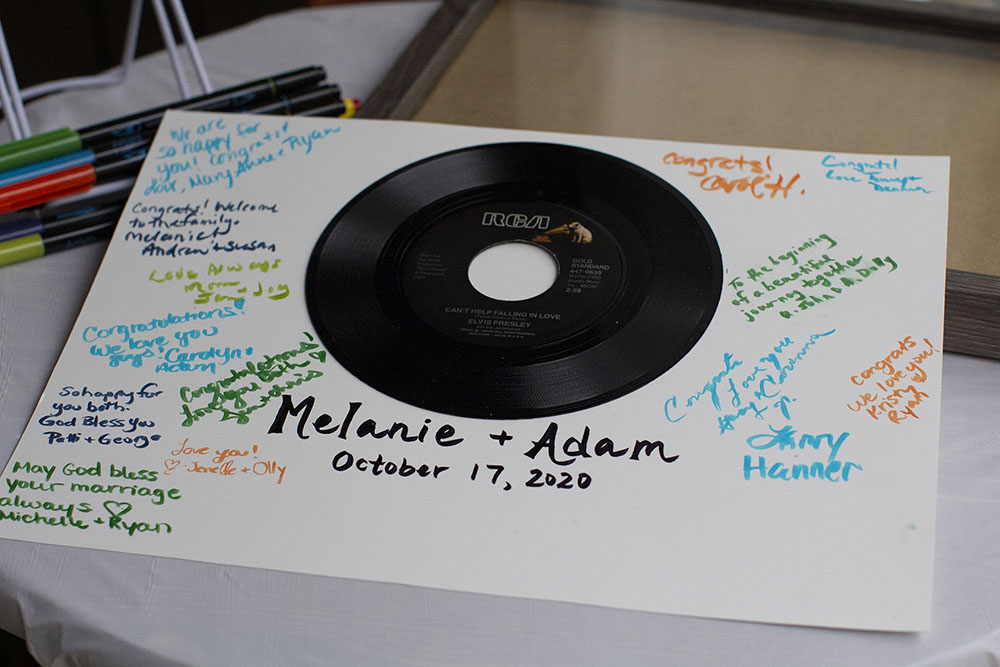 We are
so happy for
you! Congrats!
Love, Mary Anne + Ryan
Congrats! Welcome
to the family.
Melanie!
Andrew + Susan
Love Always
Mom
Jim + Joy
Congratulations!
We love you
guys! Carolyn +
Adam
Congratulations!
for you both
So happy for
you both.
God Bless you
Patti + George
love you!
♡ Janelle + Olly
May God bless
your marriage
always ♡
Michelle + Ryan
RCA
GOLD
STANDARD
447-0635
2:59
CAN'T HELP FALLING IN LOVE
ELVIS PRESLEY
Melanie + Adam
October 17, 2020
Congrats!
Carol H.
Congrats!
Love
To the beginning
of a beautiful
journey together
Congrats
Love you
Congrats
we love you!
Kristy
Ryan
Hanner